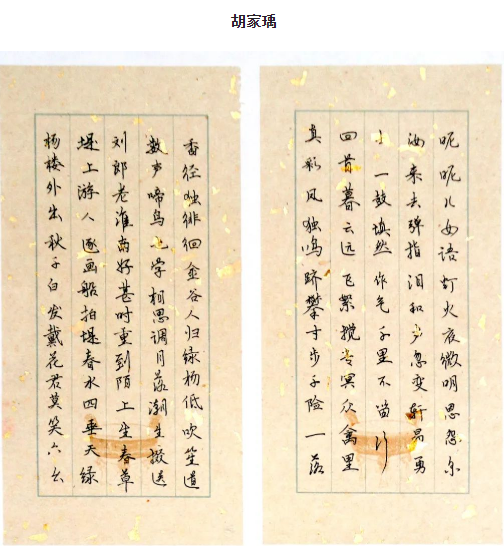 胡家瑀
呢呢儿女语灯火夜微明恩怨尔
汝来去弹指泪和声忽变轩昂勇
士一鼓填然作气千里不留行
回首暮云远飞絮搅青冥众禽里
真彩凤独鸣跻攀寸步千险一落
香径独徘徊金谷人归绿杨低吹笙道
数声啼鸟也学相思调月落潮生掇送
刘郎老淮南好甚时重到陌上生春草
堤上游人逐画船拍堤春水四垂天绿
杨楼外出秋千白发戴花君莫笑六幺